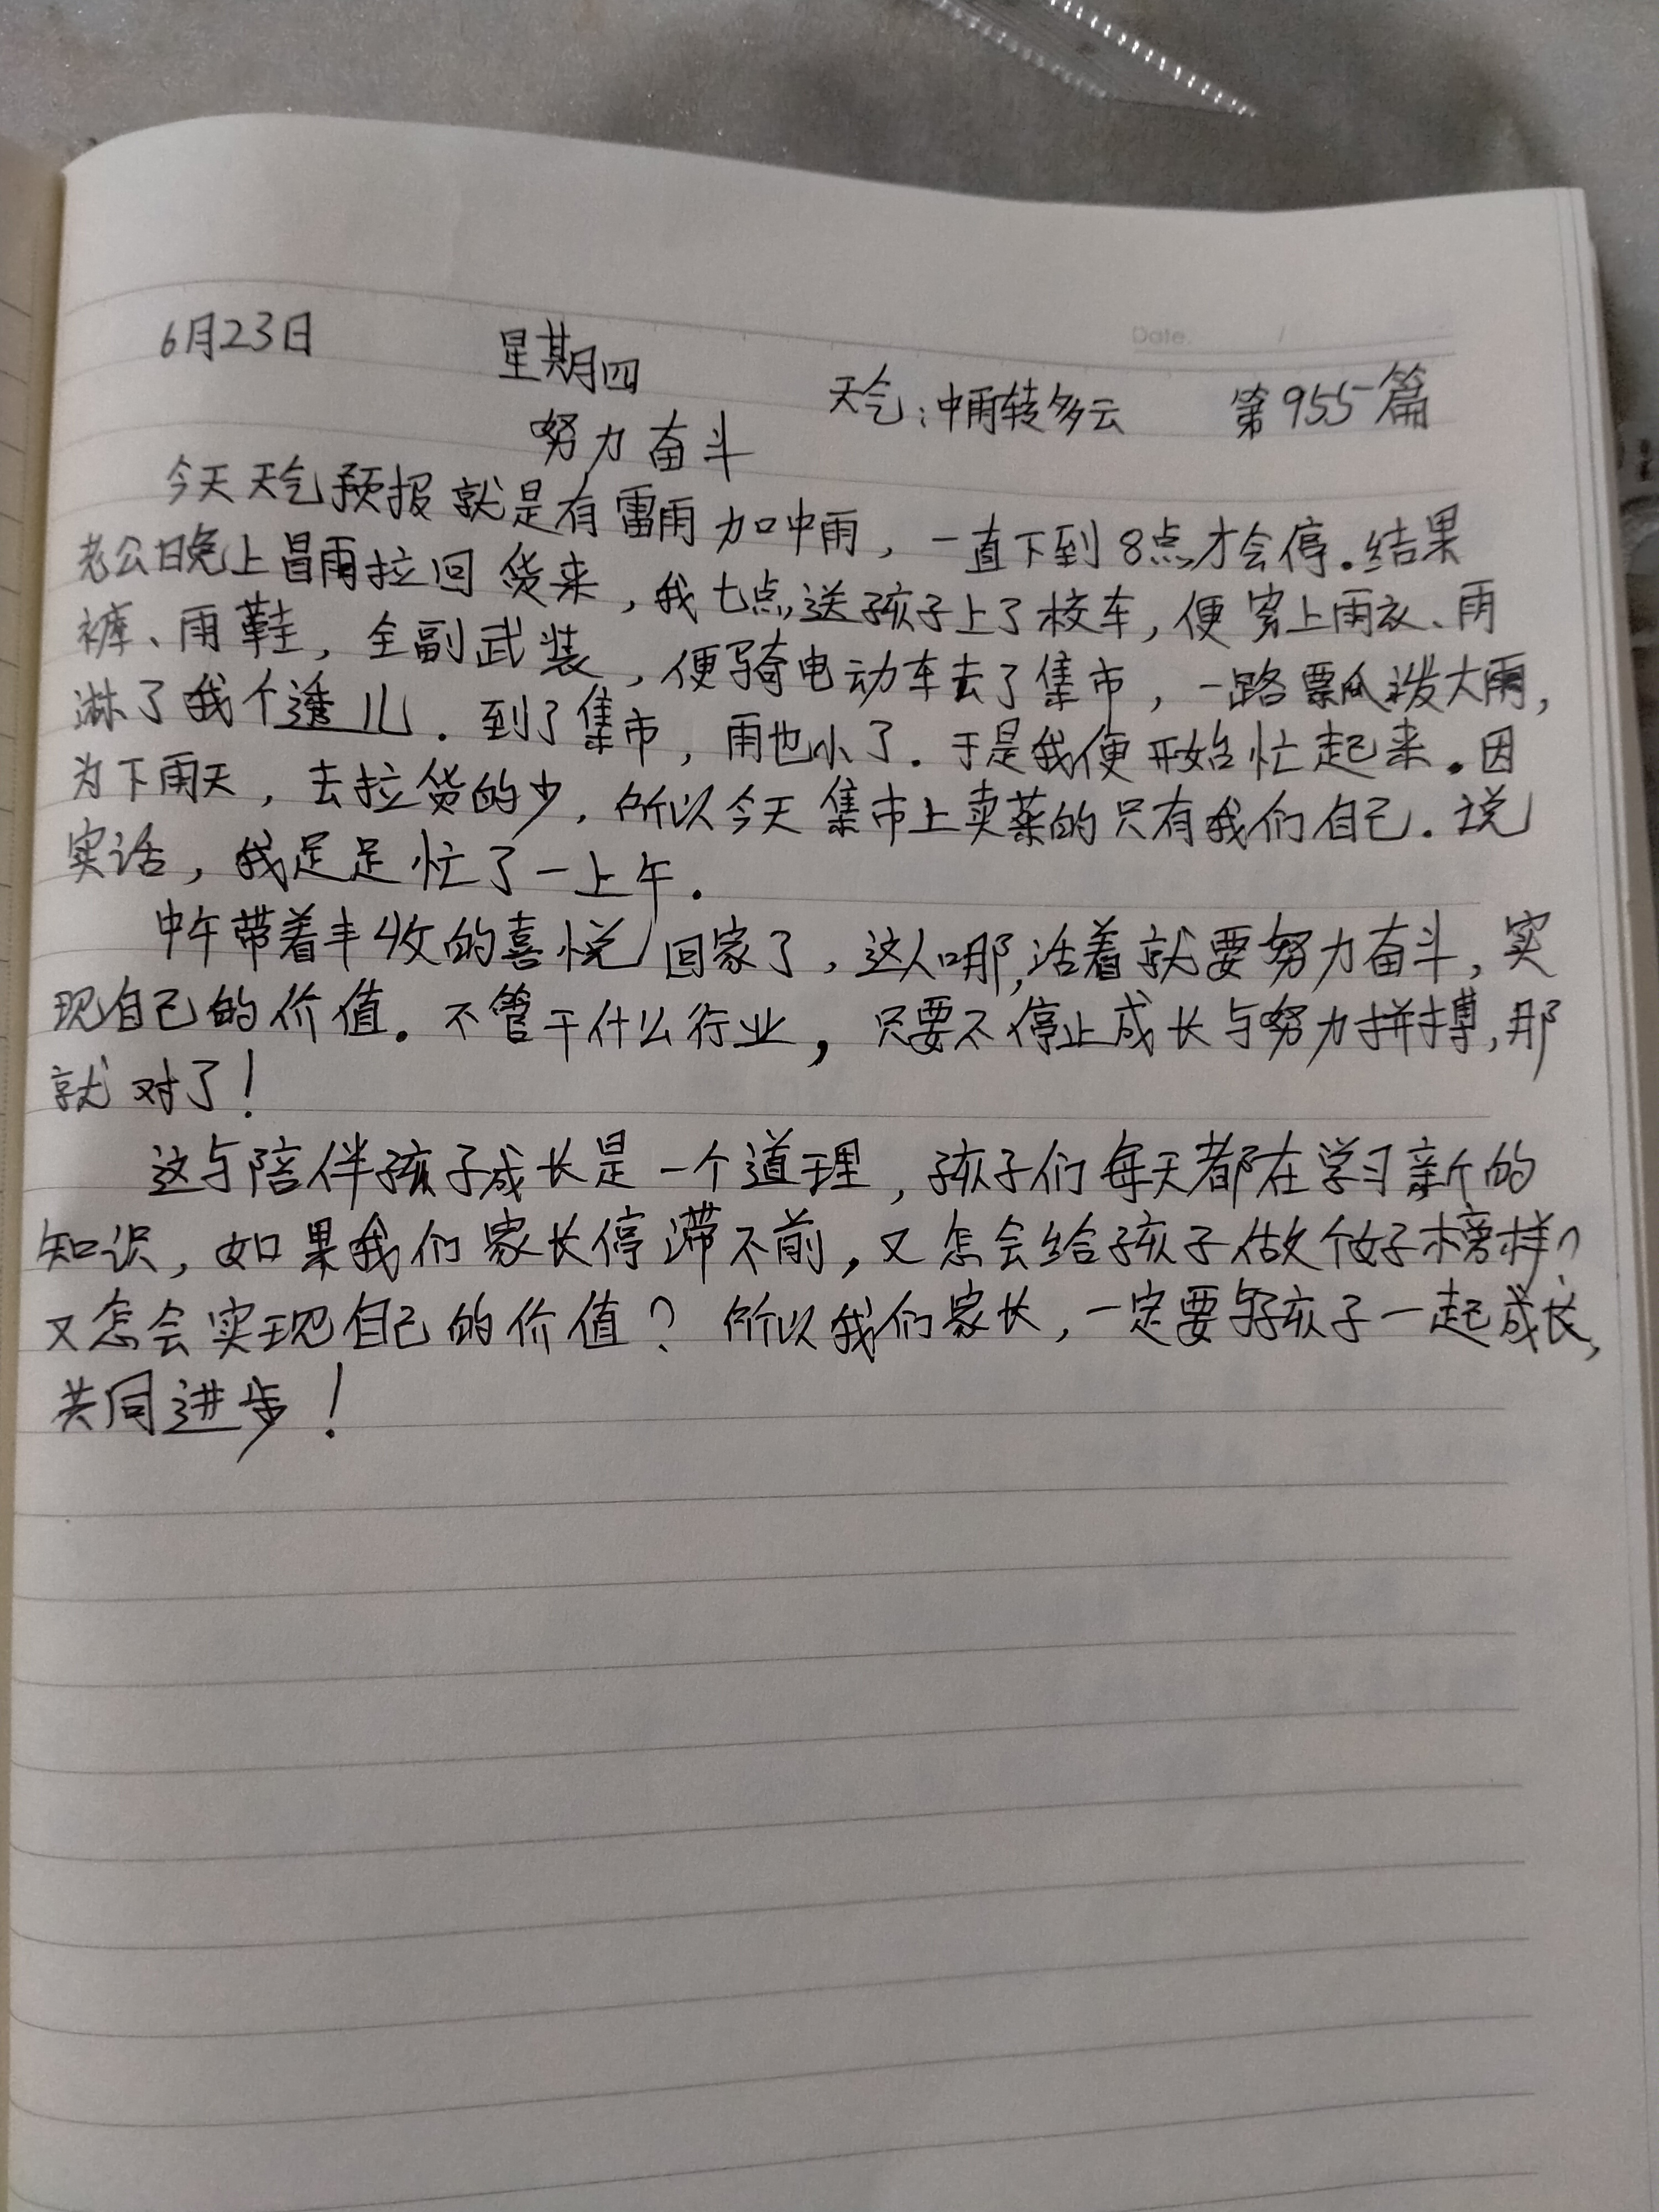 Date. /
6月23日 星期四 天气:中雨转多云 第955篇
努力奋斗
今天天气预报就是有雷雨加中雨,一直下到8点才会停.结果
老公晚上冒雨拉回货来,我七点送孩子上了校车,便穿上雨衣、雨
裤、雨鞋,全副武装,便骑电动车去了集市,一路瓢泼大雨,
淋了我个透儿.到了集市,雨也小了.于是我便开始忙起来.因
为下雨天,去拉货的少.所以今天集市上卖菜的只有我们自己.说
实话,我足足忙了一上午.
中午带着丰收的喜悦回家了,这人哪,活着就要努力奋斗,实
现自己的价值。不管干什么行业,只要不停止成长与努力拼搏,那
就对了!
这与陪伴孩子成长是一个道理,孩子们每天都在学习新的
知识,如果我们家长停滞不前,又怎会给孩子做个好榜样?
又怎会实现自己的价值?所以我们家长,一定要与孩子一起成长,
共同进步!